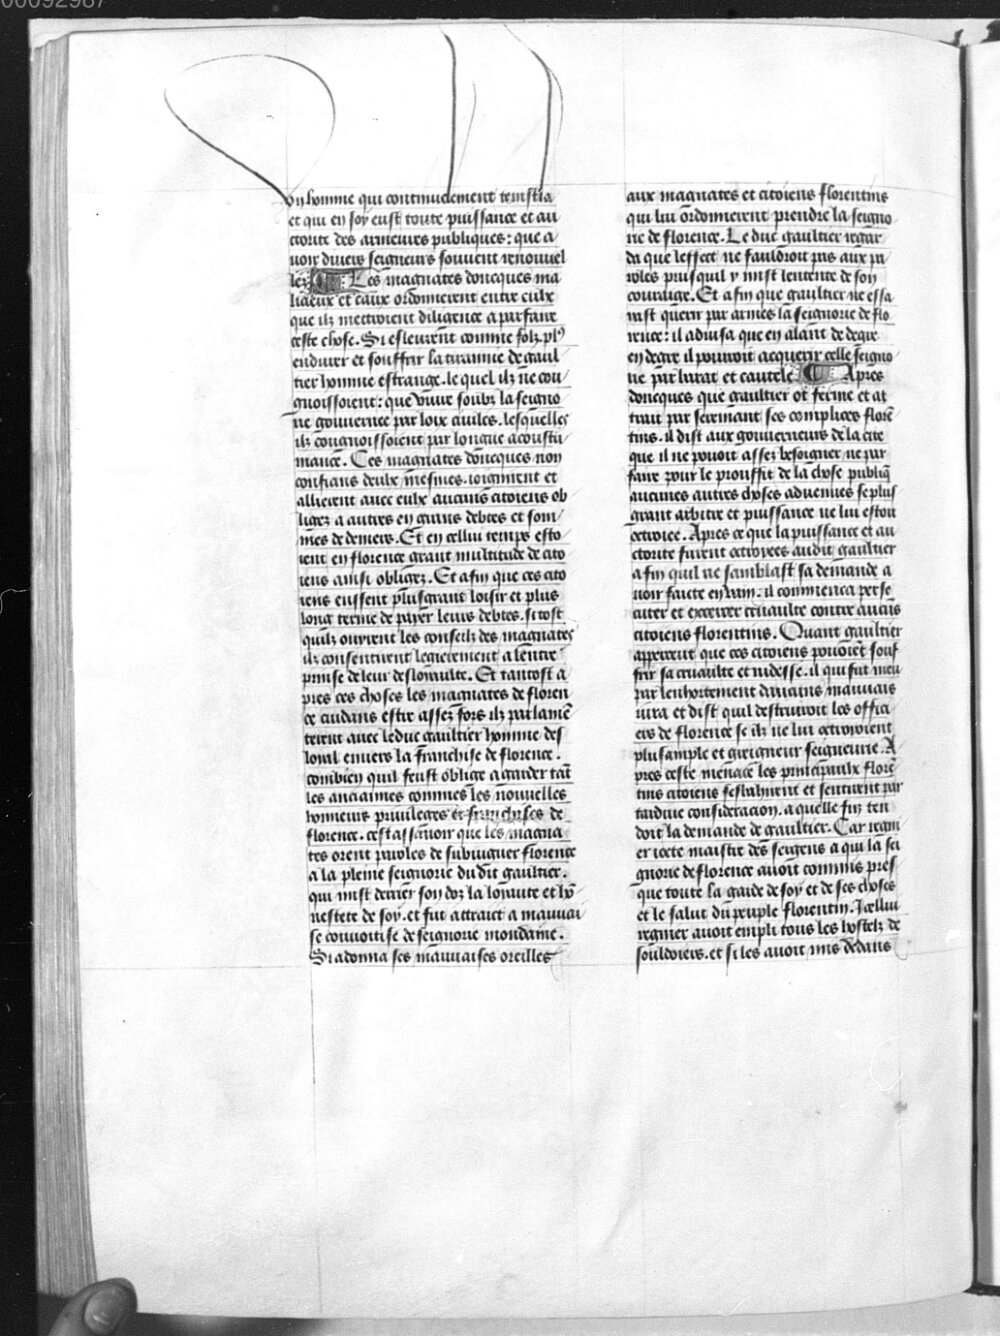 00092987
vn homme qui continuelement tenist la
et qui en soy eust toute puissance et au
ctorite des armeures publiques: que a
uoir diuers seigneurs souuent renouuel
lez Les magnates doncques ma
licieux et caux ordonnerent entre eulx
que ilz mectroient diligence a parfaire
ceste chose. Si esleurent comme folz pl9
endurer et souffrir la tirannie de gaul
tier homme estrange. le quel ilz ne con
gnoissoient: que viure soubz la seigno
rie gouuernee par loix ciuiles. lesquelles
ilz congnoissoient par longue acoustu
mance. Ces magnates doncques non
confians deulx mesmes. ioignirent et
allierent auec eulx aucuns citoiens ob
ligez a autres en grans debtes et som
mes de deniers. Et en cellui temps esto
ient en florence grant multitude de cito
iens ainsi obligez. Et afin que ces cito
iens eussent plusgrant loisir et plus
long terme de paier leurs debtes. si tost
quilz ouyrent les conseilz des magnates
ilz consentirent legierement a lentre
prinse de leur desloyaulte. Et tantost a
pres ces choses les magnates de floren
ce cuidans estre assez fors ilz parlamē
terent auec le duc gaultier homme des
loyal enuers la franchise de florence.
combien quil feust oblige a garder tāt
les anciannes commes les nouuelles
honneurs priuileges et franchises de
florence. cest assauoir que les magna
tes orent paroles de subiuguer florence
a la pleine seignorie du dit gaultier.
qui mist derrier son doz la loyaute et hō
nestete de soy. et fut attraict a mauuai
se conuoitise de seignorie mondaine.
Si adonna ses mauuaises oreilles
aux magnates et citoiens florentins
qui lui ordonnerent prendre la seigno
rie de florence. Le duc gaultier regar
da que leffect ne fauldroit pas aux pa
roles puis quil y mist lentente de son
couraige. Et afin que gaultier ne essa
iast querir par armes la seignorie de flo
rence: il aduisa que en alant de degre
en degre il pouuoit acquerir celle seigno
rie par barat et cautele Apres
doncques que gaultier ot ferme et at
trait par serement ses complices florē
tins. il dist aux gouuerneurs de la cite
que il ne pouoit assez besoigner ne par
faire pour le prouffit de la chose publiq
aucunes autres choses aduenues se plus
grant arbitre et puissance ne lui estoit
octroiee. Apres ce que la puissance et au
ctorite furent octroyees audit gaultier
afin quil ne samblast sa demande a
uoir faicte en vain: il commenca perse
cuter et excercer cruaulte contre aucūs
citoiens florentins. Quant gaultier
apperceut que ces citoiens pouoiēt souf
frir sa cruaulte et rudesse. il qui fut meu
par lenhortement daucuns mauuais
iura et dist quil destruiroit les offici
ers de florence se ilz ne lui octroyoient
plus ample et greigneur seigneurie. A
pres ceste menace les principaulx florē
tins citoiens sesbahirent et sentirent par
tardiue consideracion. a quelle fin ten
doit la demande de gaultier. Car regni
er icete maistre des sergens a qui la sei
gnorie de florence auoit commis pres
que toute la garde de soy et de ses choses
et le salut du peuple florentin. Icellui
regnier auoit empli tous les hostelz de
souldoiers. et si les auoit mis dedans